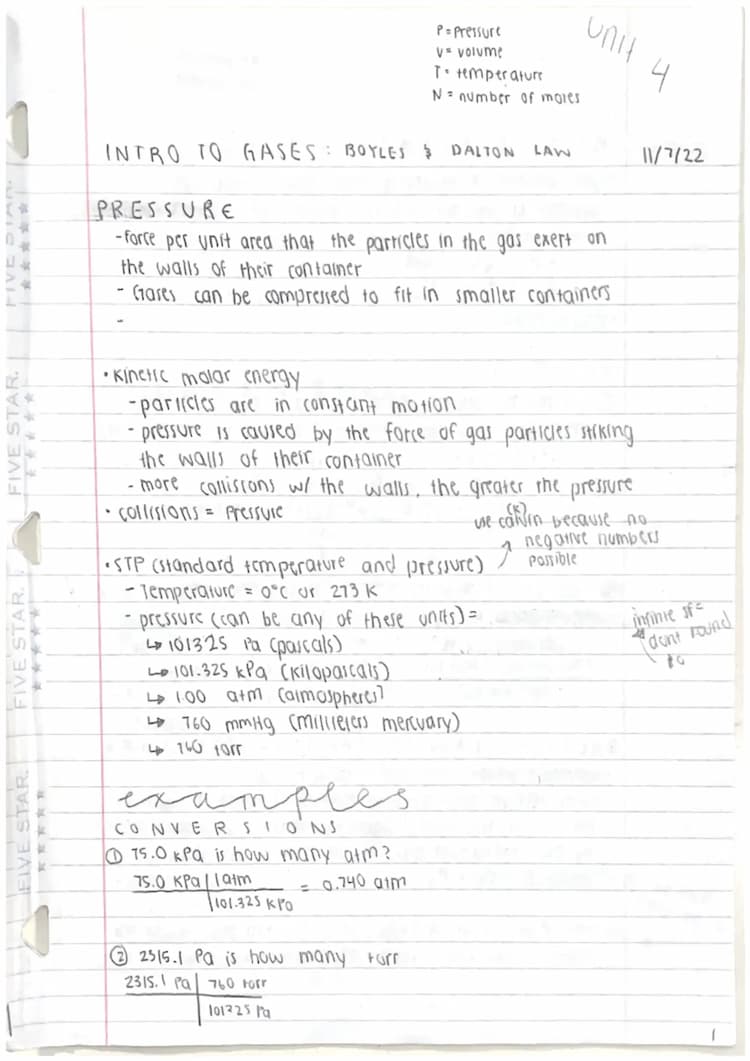 P = Pressure
V = volume
T = temperature
N = number of moles
Unit 4
INTRO TO GASES: BOYLES & DALTON LAW 11/7/22
PRESSURE
-force per unit area that the particles in the gas exert on
the walls of their container
- Gases can be compressed to fit in smaller containers
-
• Kinetic molar energy
- particles are in constant motion
- pressure is caused by the force of gas particles striking
the walls of their container
- more collisions w/ the walls, the greater the pressure
• collisions = Pressure
(K)
use because no
negative numbers
possible
• STP (standard temperature and pressure)
- Temperature = 0°C or 273 K
- pressure (can be any of these units) =
↳ 101325 Pa (pascals)
↳ 101.325 kPa (kilopascals)
↳ 1.00 atm (atmospheres)
↳ 760 mmHg (millieters mercuary)
↳ 760 torr
infinite sf =
dont round
to
examples
CONVERSIONS
① 75.0 kPa is how many atm?
75.0 kPa | 1atm = 0.740 atm
101.325 kPa
② 2315.1 Pa is how many torr
2315.1 Pa | 760 torr
101325 Pa
1
FIVE STAR.
FIVE STAR.
FIVE STAR.
FIVE STAR.